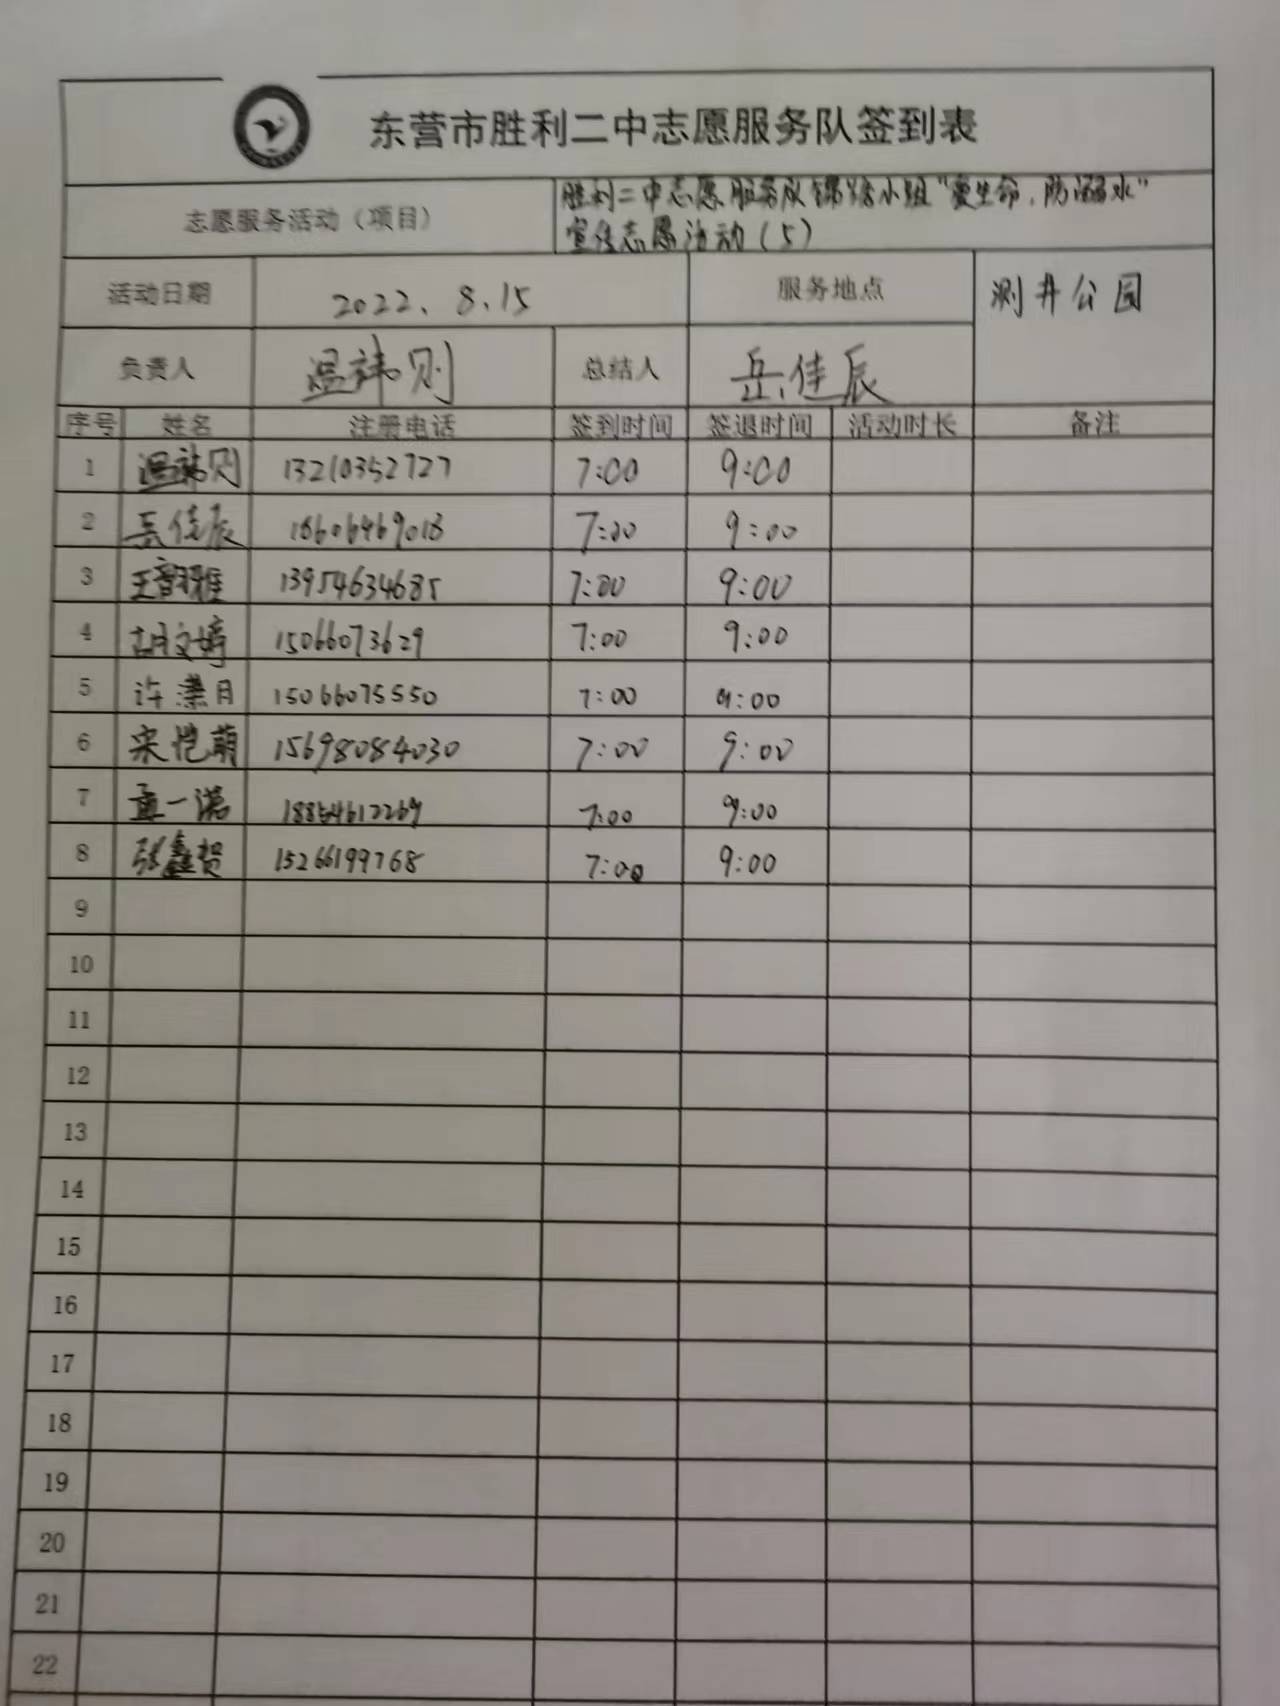 东营市胜利二中志愿服务队签到表
志愿服务活动（项目） 胜利二中志愿服务队锦绣小组“爱生命，防溺水”
宣传志愿活动（5）
活动日期 2022、8、15 服务地点 测井公园
负责人 温祎则 总结人 岳佳辰
序号 姓名 注册电话 签到时间 签退时间 活动时长 备注
1 温祎则 13210352727 7:00 9:00
2 岳佳辰 18606469018 7:00 9:00
3 王韵雅 13954634685 7:00 9:00
4 胡文婷 15066073629 7:00 9:00
5 许潆月 15066075550 7:00 9:00
6 宋恺萌 15698084030 7:00 9:00
7 一诺 18854612269 7:00 9:00
8 张鑫贺 15266199768 7:00 9:00
9
10
11
12
13
14
15
16
17
18
19
20
21
22